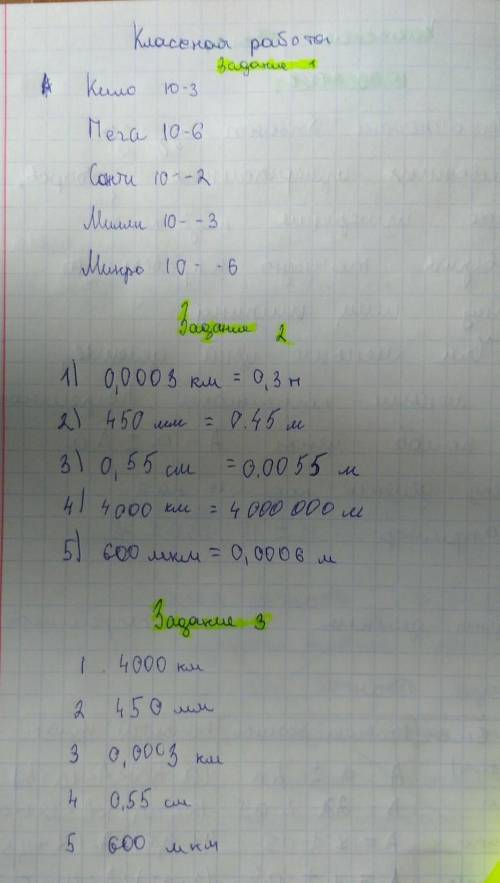 Классная работа
Задание 1
Кило 10-3
Мега 10-6
Санти 10--2
Милли 10--3
Микро 10--6
Задание 2
1) 0,0003 км = 0,3 н
2) 450 мм = 0.45 м
3) 0,55 см = 0.0055 м
4) 4000 км = 4000 000 м
5) 600 мкм = 0,0006 м
Задание 3
1. 4000 км
2 450 мм
3 0,0003 км
4 0,55 см
5 600 мкм